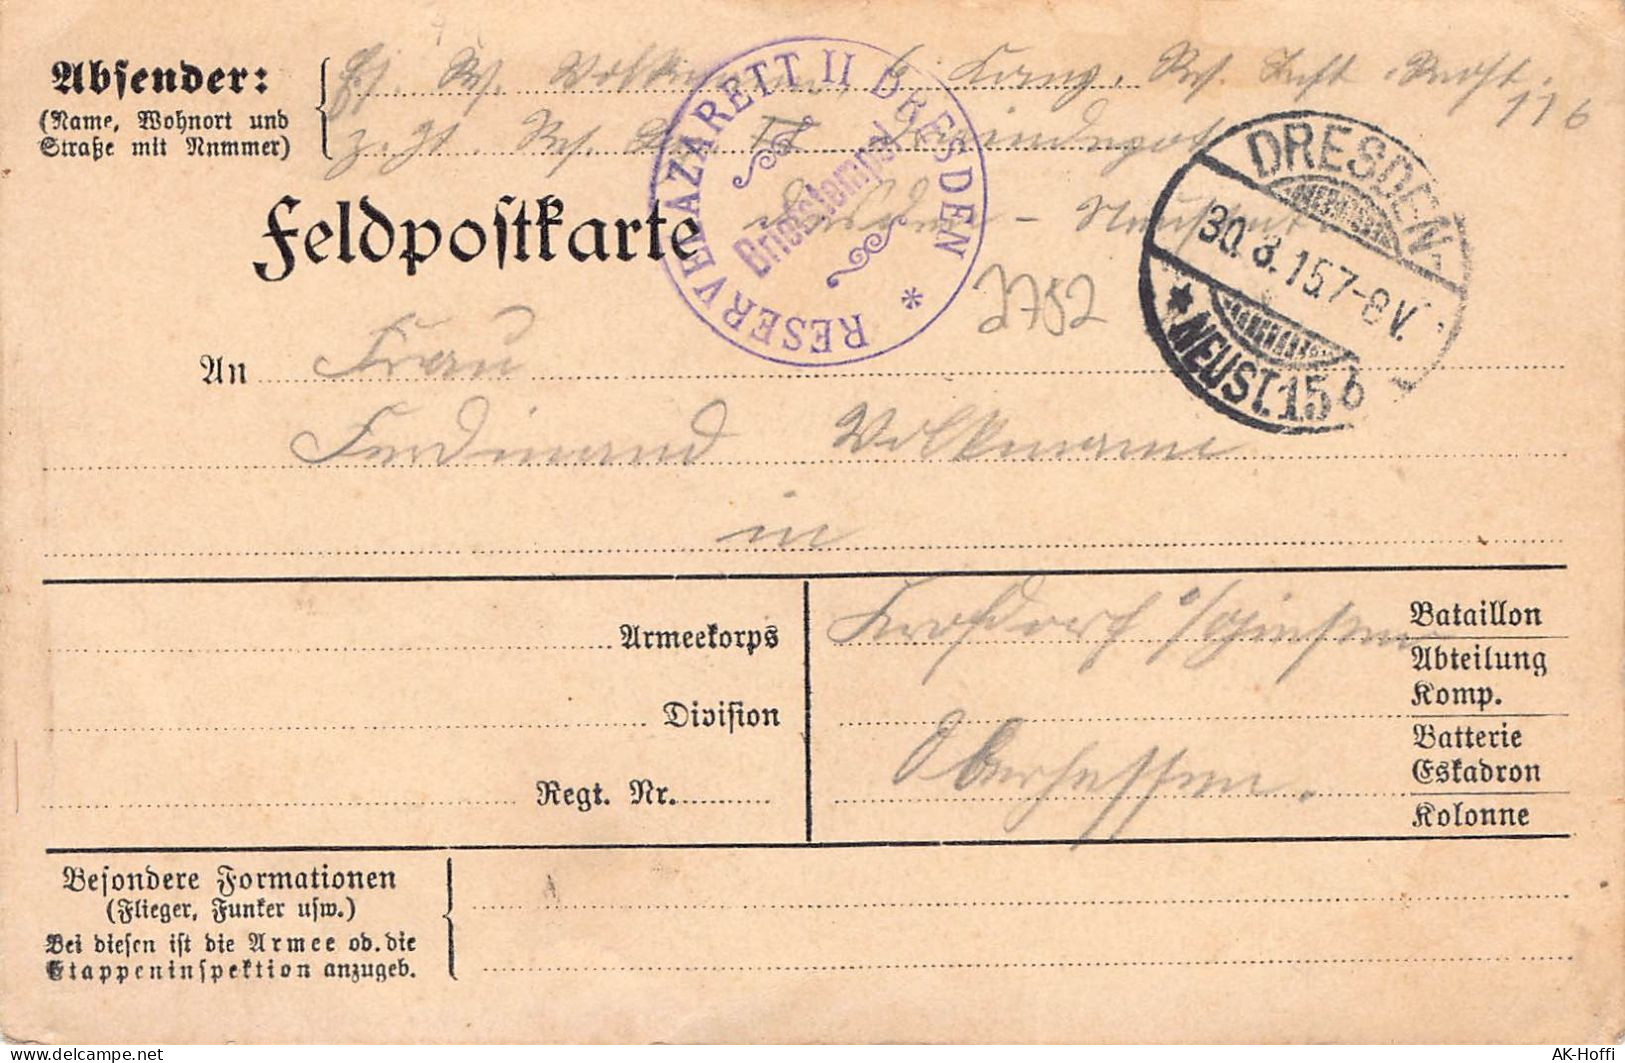 Absender:
(Name, Wohnort und
Straße mit Nummer)
116
Feldpostkarte
RESERVELAZARETT II DRESDEN *
Briefstempel
DRESDEN-
30. 8. 15. 7-8 V.
* NEUST. 15 b
2752
An Frau
Ferdinand Volkmann
in
Krofdorf b/Giessen
Oberhessen.
Armeekorps
Division
Regt. Nr.
Bataillon
Abteilung
Komp.
Batterie
Eskadron
Kolonne
Besondere Formationen
(Flieger, Funker usw.)
Bei diesen ist die Armee od. die
Etappeninspektion anzugeb.
delcampe.net
AK-Hoffi